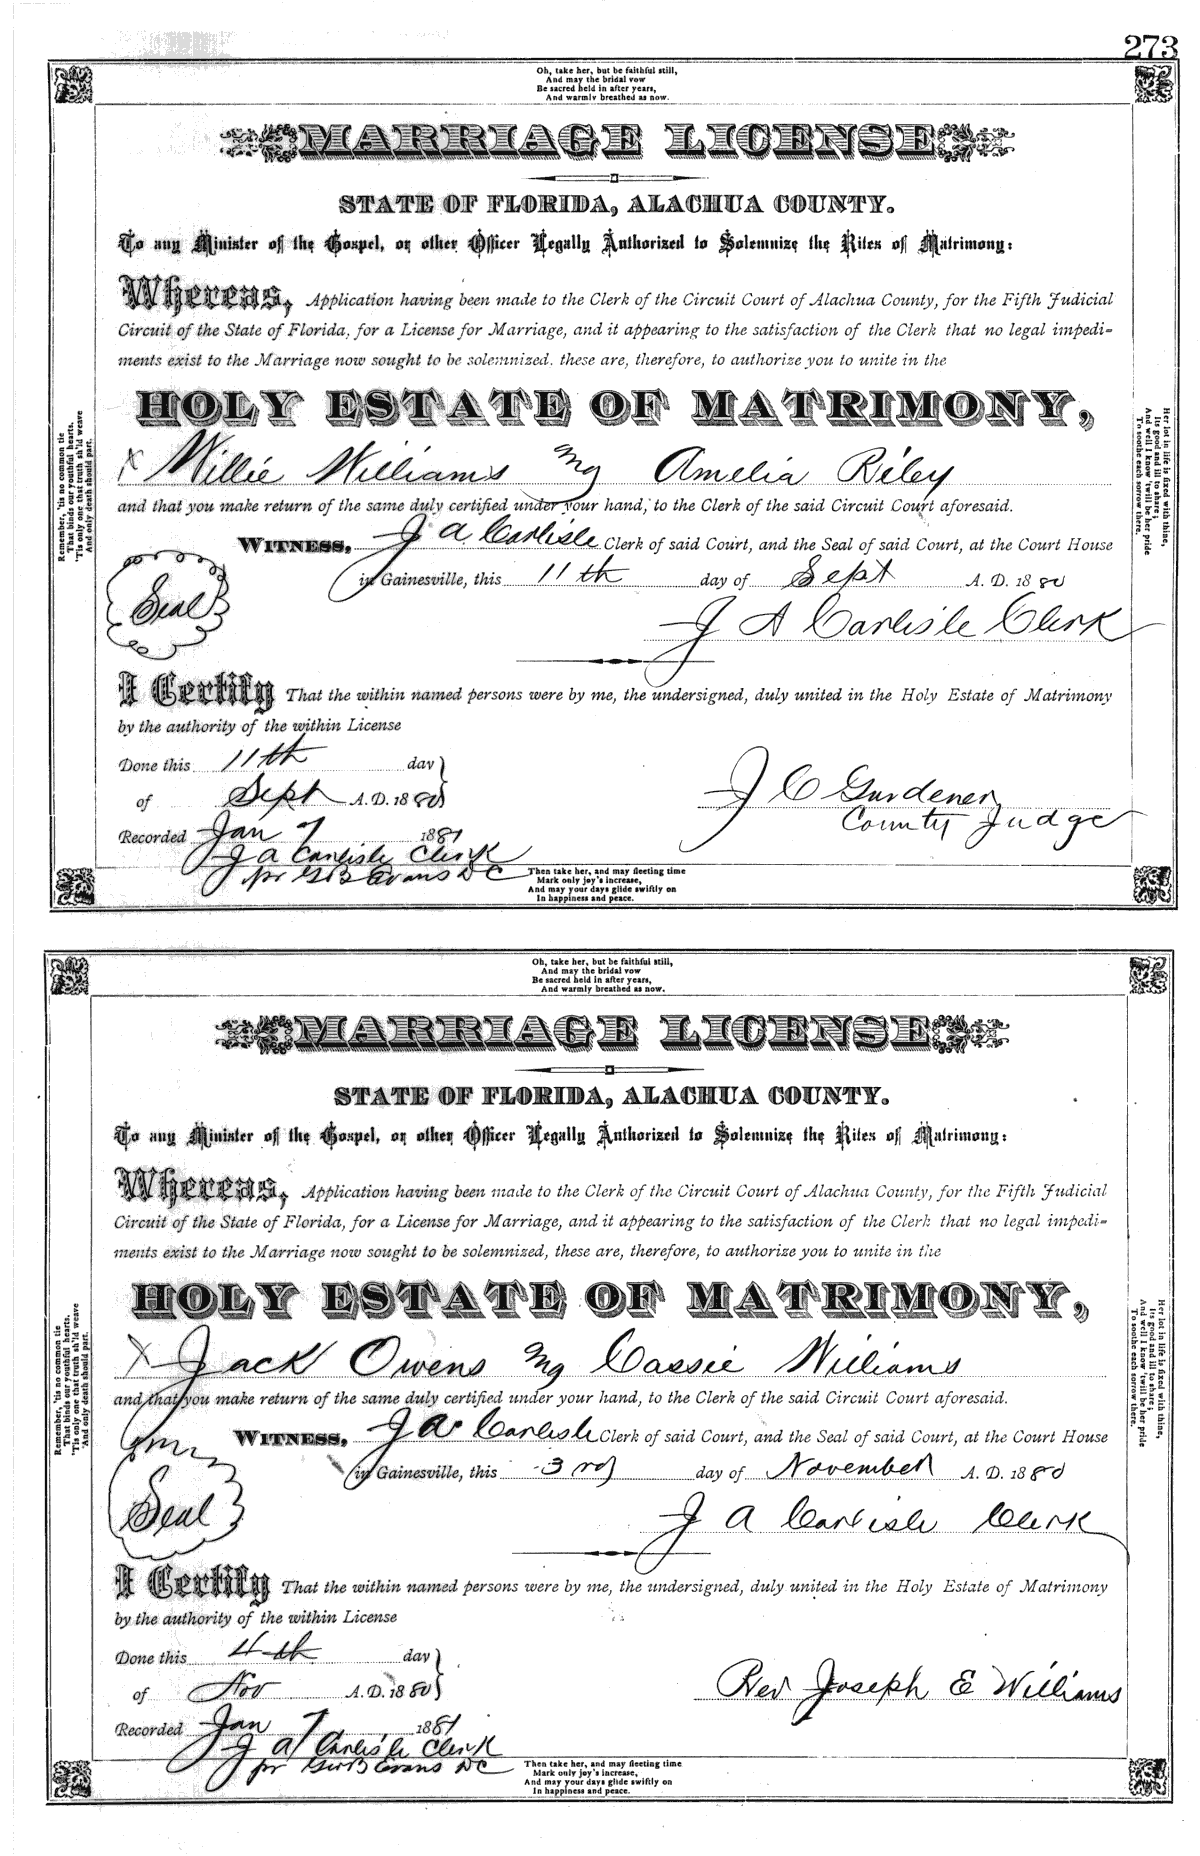 273
Oh, take her, but be faithful still,
And may the bridal vow
Be sacred held in after years,
And warmly breathed as now.
MARRIAGE LICENSE
STATE OF FLORIDA, ALACHUA COUNTY.
To any Minister of the Gospel, or other Officer Legally Authorized to Solemnize the Rites of Matrimony:
Whereas, Application having been made to the Clerk of the Circuit Court of Alachua County, for the Fifth Judicial
Circuit of the State of Florida, for a License for Marriage, and it appearing to the satisfaction of the Clerk that no legal impedi-
ments exist to the Marriage now sought to be solemnized. these are, therefore, to authorize you to unite in the
HOLY ESTATE OF MATRIMONY,
X Willie Williams Amelia Riley
and that you make return of the same duly certified under your hand, to the Clerk of the said Circuit Court aforesaid.
WITNESS, J A Carlisle Clerk of said Court, and the Seal of said Court, at the Court House
in Gainesville, this 11th day of Sept A. D. 1880
Seal
J A Carlisle Clerk
I Certify That the within named persons were by me, the undersigned, duly united in the Holy Estate of Matrimony
by the authority of the within License
Done this 11th day
of Sept A. D. 1880
J C Gardener
County Judge
Recorded Jan 7 1881
J A Carlisle Clerk
pr Evans DC
Then take her, and may fleeting time
Mark only joy's increase,
And may your days glide swiftly on
In happiness and peace.
Remember, 'tis no common tie
That binds our youthful hearts.
'Tis only one that truth sh'ld weave
And only death should part.
Her lot in life is fixed with thine,
Its good and ill to share;
And well I know 'twill be her pride
To soothe each sorrow there.
Oh, take her, but be faithful still,
And may the bridal vow
Be sacred held in after years,
And warmly breathed as now.
MARRIAGE LICENSE
STATE OF FLORIDA, ALACHUA COUNTY.
To any Minister of the Gospel, or other Officer Legally Authorized to Solemnize the Rites of Matrimony:
Whereas, Application having been made to the Clerk of the Circuit Court of Alachua County, for the Fifth Judicial
Circuit of the State of Florida, for a License for Marriage, and it appearing to the satisfaction of the Clerk that no legal impedi-
ments exist to the Marriage now sought to be solemnized, these are, therefore, to authorize you to unite in the
HOLY ESTATE OF MATRIMONY,
X Jack Owens Cassie Williams
and that you make return of the same duly certified under your hand, to the Clerk of the said Circuit Court aforesaid.
WITNESS, J A Carlisle Clerk of said Court, and the Seal of said Court, at the Court House
in Gainesville, this 3rd day of November A. D. 1880
Seal
J A Carlisle Clerk
I Certify That the within named persons were by me, the undersigned, duly united in the Holy Estate of Matrimony
by the authority of the within License
Done this 4th day
of Nov A. D. 1880
Rev Joseph E Williams
Recorded Jan 7 1881
J A Carlisle Clerk
pr Evans DC
Then take her, and may fleeting time
Mark only joy's increase,
And may your days glide swiftly on
In happiness and peace.
Remember, 'tis no common tie
That binds our youthful hearts.
'Tis only one that truth sh'ld weave
And only death should part.
Her lot in life is fixed with thine,
Its good and ill to share;
And well I know 'twill be her pride
To soothe each sorrow there.